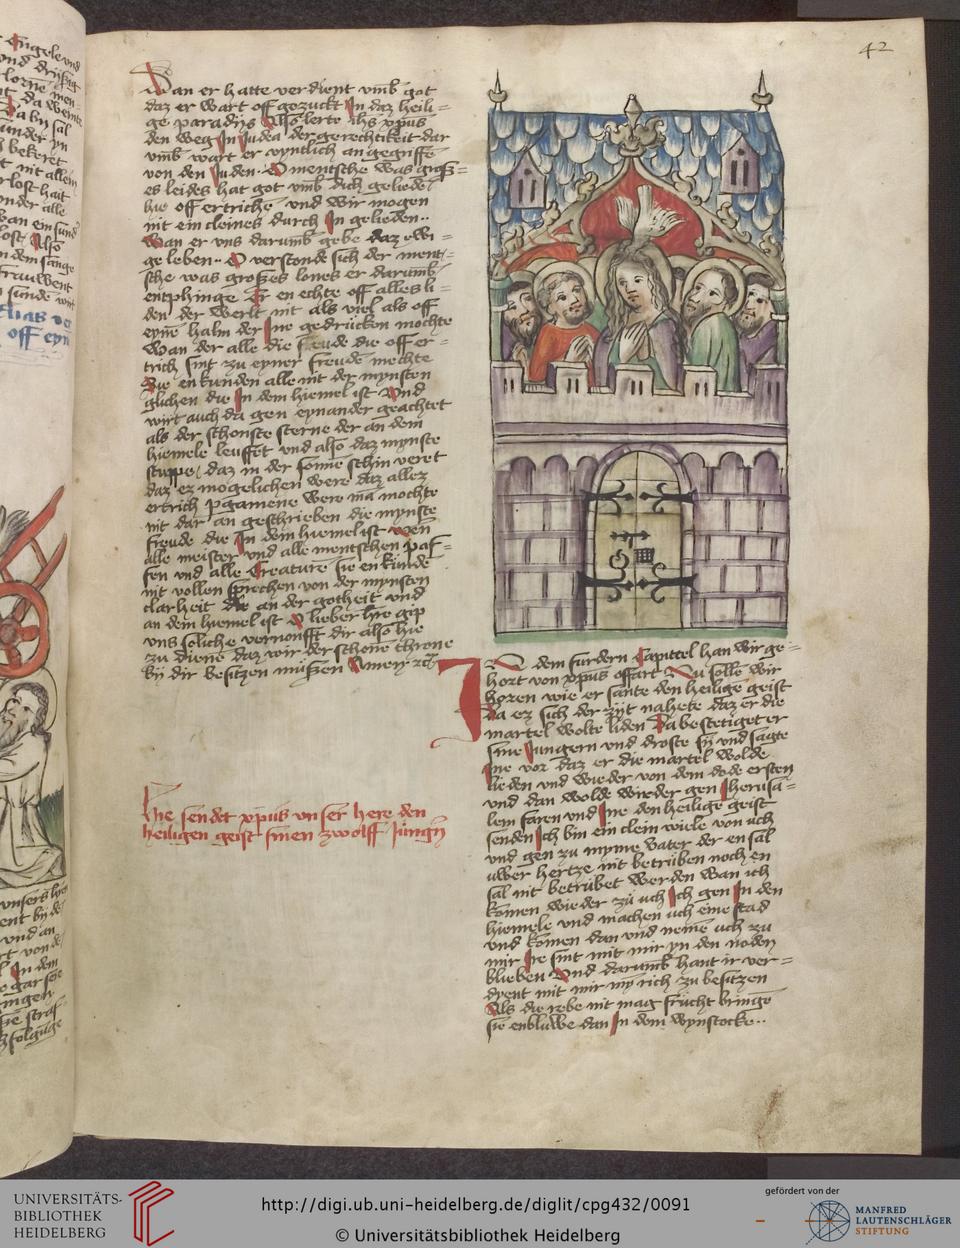 42
Wan er hatte verdient vmb got
daz er wart off gezuckt In daz heili=
ge paradiys Also lerte ihs xpus
den weg In Judea der gerechtikeit dar
vmb wart er vyntlich an gegriffe
von den Juden O mentsche was groß=
es leides hat got vmb dich geliede
hie off ertriche vnd wir mogen
nit ein cleines durch In geliden..
Wan er vns darumb gebe daz ewi=
ge leben.. O verstonde sich der ment=
sche was großes lones er darumb
entphinge Er en echte off alles li=
den der werlt nit als viel als off
eyne halm der Ine gedrücken mochte
Wan der alle die freude die off er=
trich sint zu eyner freude mechte
Die en kunden alle nit der mynsten
glichen die In dem hiemel ist Vnd
wirt auch da gen eynander geachtet
als der schonste sterne der an dem
hiemele leuffet vnd also daz mynste
stuppe daz in der sonne schin veret
daz ez mogelichen were daz allez
ertrich pgamene were ma mochte
nit dar an geschrieben die mynste
freude die In dem hiemel ist wen
alle meister vnd alle mentschen paf=
fen vnd alle Creature sie en künde
nit vollen sprechen von der mynsten
clarheit die an der gotheit vnd
an dem hiemel ist O lieber hre gip
vns soliche vernonfft dir also hie
zu diene daz wir der schone throne
by dir besitzen müßen Amen
Hie sendet xpus vnser here den
heiligen geist sinen zwolff Jüngn
IN dem furdern Capittel han wir ge=
hort von xpus offart Nu solle wir
horen wie er sante den heilige geist
Da ez sich der zyt nahete daz er die
martel wolte liden Da bestetiget er
sine Jungern vnd droste sy vnd sagte
Ine vor daz er die martel wolde
lieden vnd wieder von dem dode ersten
vnd dan wolde wieder gen Jherusa=
lem faren vnd Ine den heilige geist
senden Ich bin ein clein wiele von uch
vnd gen zu myme vater der en sal
uwer hertze nit betrüben noch en
sal nit betrübet werden wan ich
komen wieder zu uch Ich gen In den
hiemele vnd machen uch eine stad
vnd komen dan vnd neme uch zu
mir Ire sint mit mir yn den noden
blieben Vnd darumb hant ir ver=
dyent mit mir my rich zu besitzen
Als die rebe nit mag frücht bringe
sie enbliwe dan In dem wynstocke..
UNIVERSITÄTS-
BIBLIOTHEK
HEIDELBERG
http://digi.ub.uni-heidelberg.de/diglit/cpg432/0091
© Universitätsbibliothek Heidelberg
gefördert von der
MANFRED
LAUTENSCHLÄGER
STIFTUNG